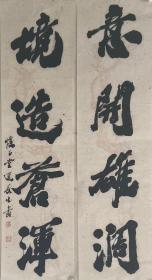 意開雄潤
境造蒼渾